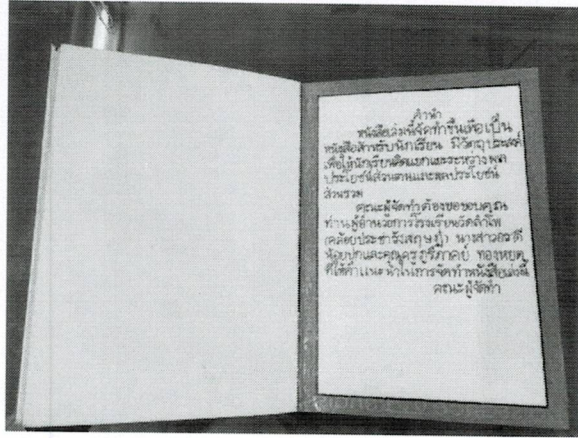 คำนำ
หนังสือเล่มนี้จัดทำขึ้นเพื่อเป็น
หนังสือสำหรับนักเรียน มีวัตถุประสงค์
เพื่อให้นักเรียนคิดแยกแยะระหว่างผล
ประโยชน์ส่วนตนและผลประโยชน์
ส่วนรวม
คณะผู้จัดทำต้องขอขอบคุณ
ท่านผู้อำนวยการโรงเรียนวัดลำโพ
(คล้อยประชารังสฤษฎ์) นางสาว
น้อยปุกและคุณครูภูริภาคย์ ทองหยด
ที่ให้คำแนะนำในการจัดทำหนังสือเล่มนี้
คณะผู้จัดทำ